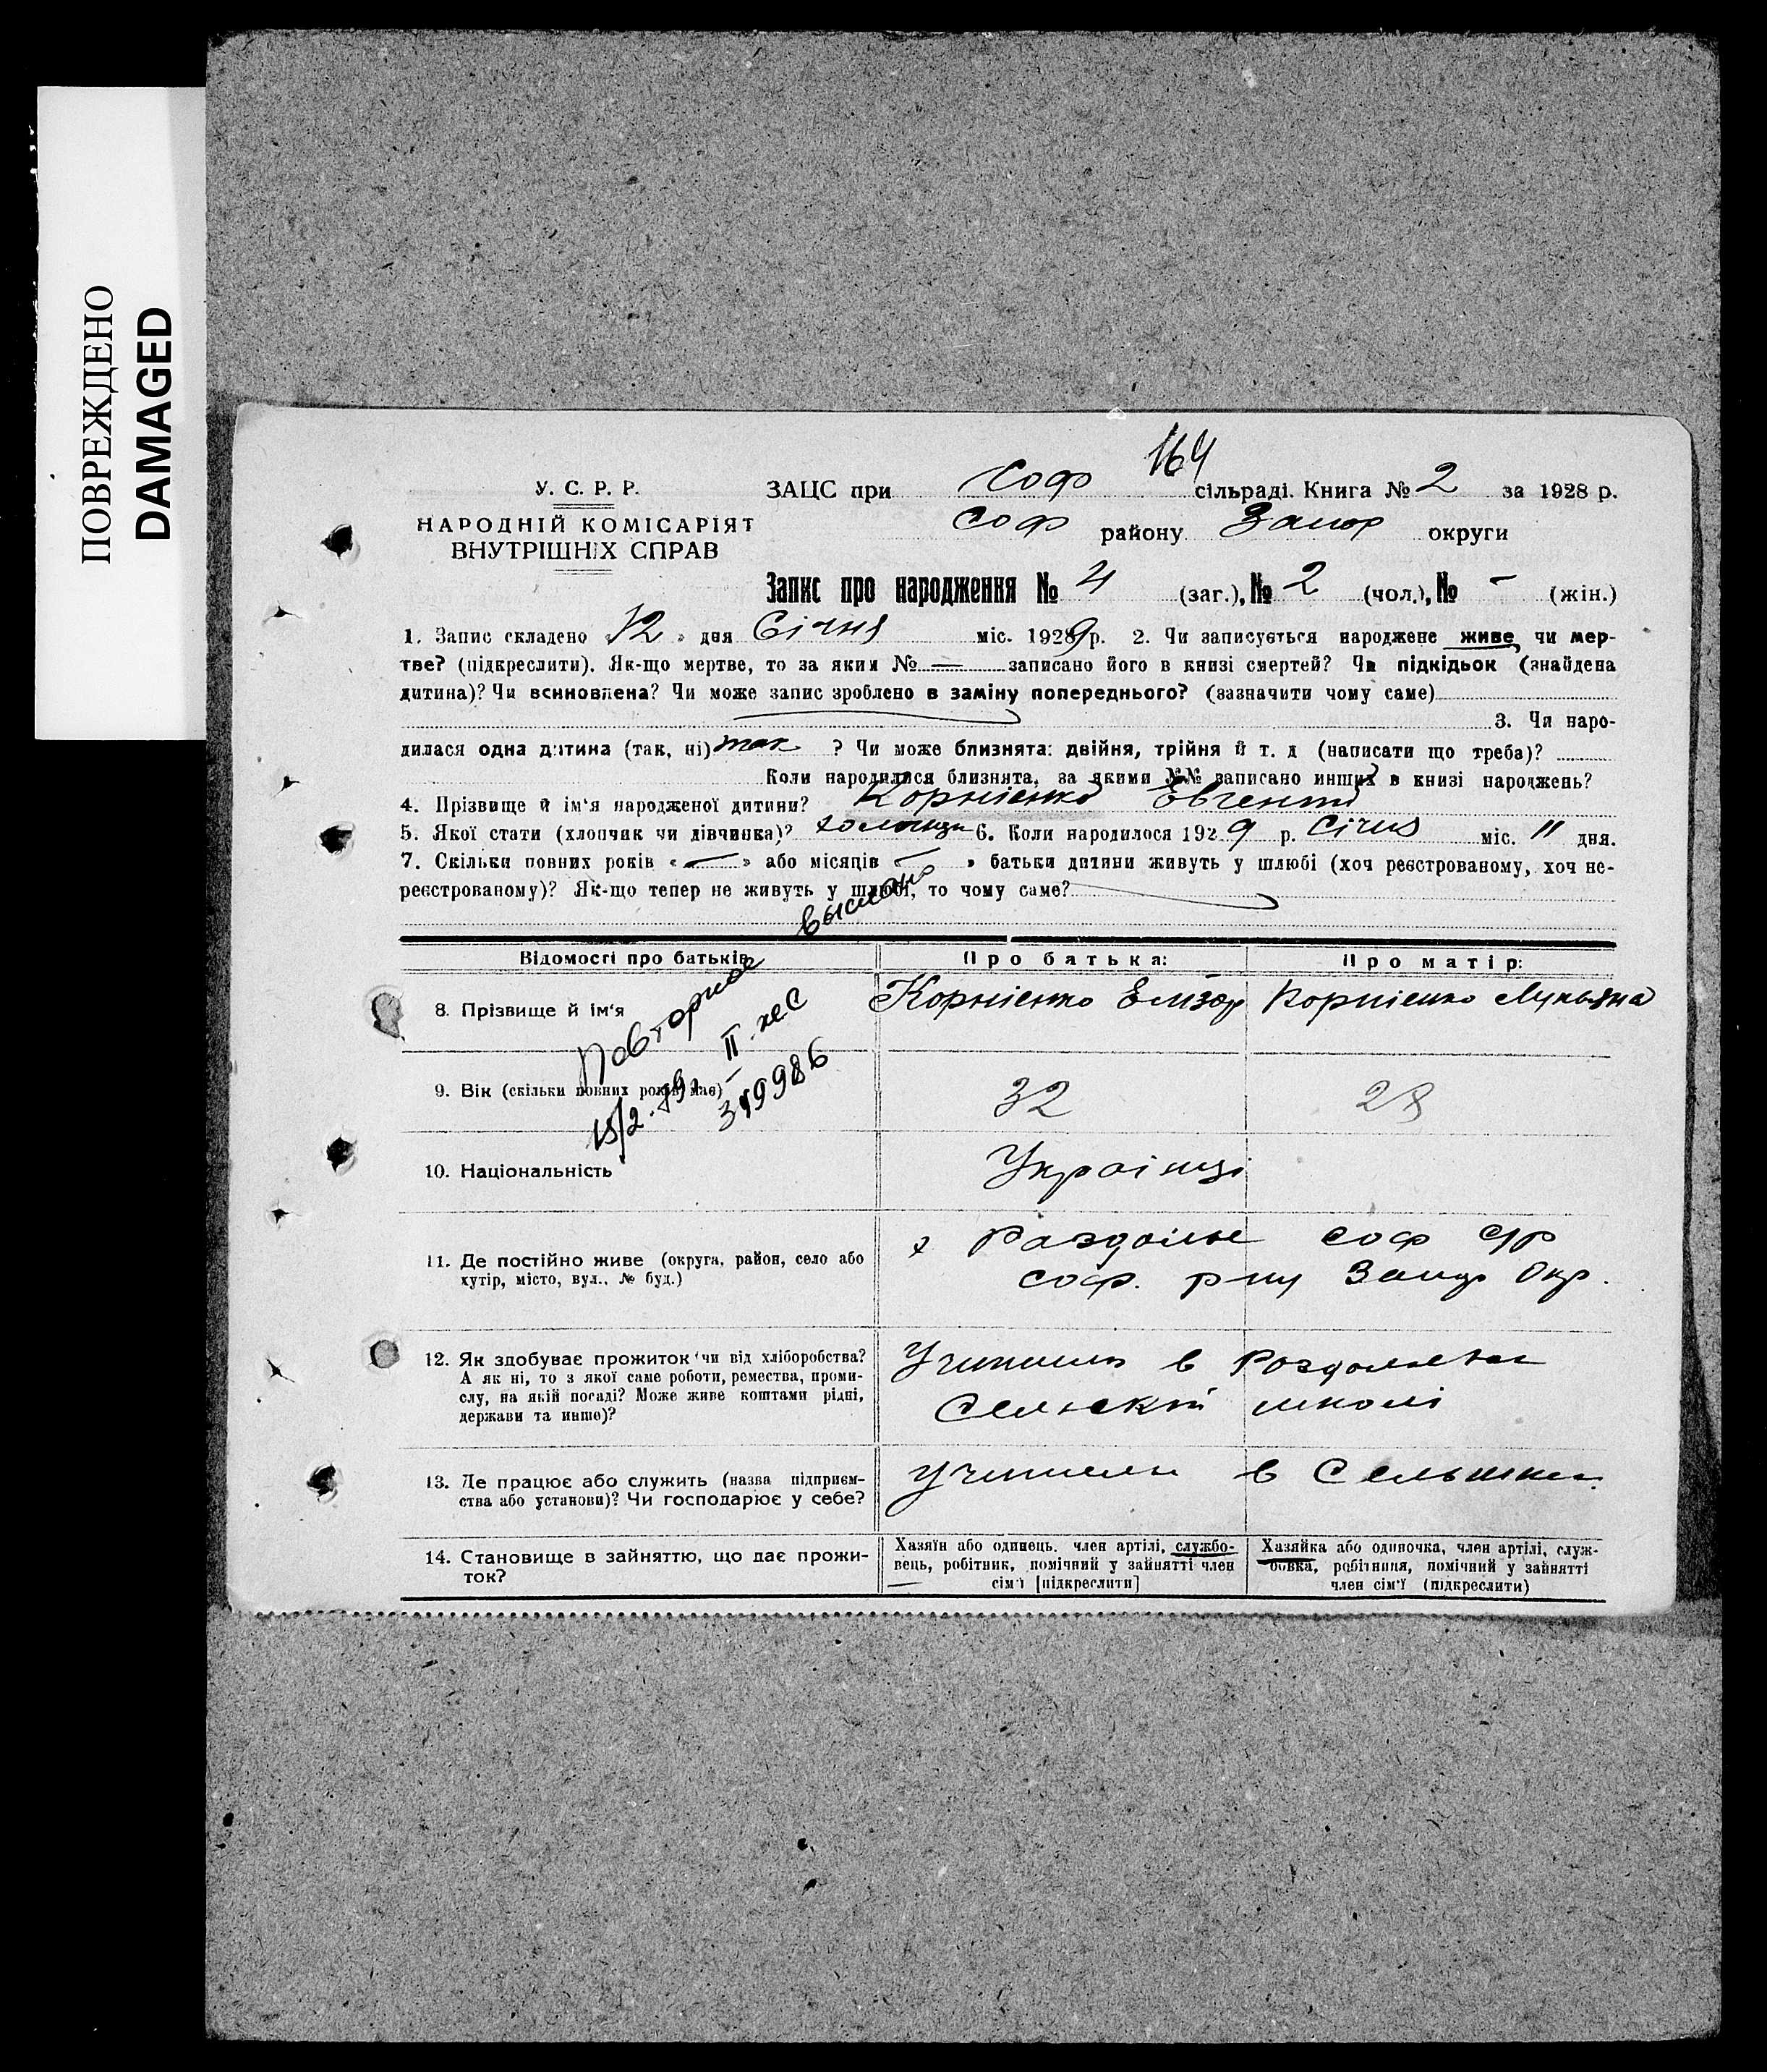 ПОВРЕЖДЕНО
DAMAGED
164
У. С. Р. Р.
НАРОДНІЙ КОМІСАРІЯТ
ВНУТРІШНІХ СПРАВ
ЗАЦС при Соф сільраді. Книга № 2 за 1928 р.
Соф району Запор округи
Запис про народження № 4 (заг.), № 2 (чол.), № - (жін.)
1. Запис складено 12 » дня Січня міс. 1929 р. 2. Чи записується народжене живе, чи мер-
тве? (підкреслити). Як-що мертве, то за яким № — записано його в книзі смертей? Чи підкідьок (знайдена
дитина)? Чи всиновлена? Чи може запис зроблено в заміну попереднього? (зазначити чому саме)
3. Чи наро-
дилася одна дитина (так, ні) так ? Чи може близнята: двійня, трійня й т. д (написати що треба)?
Коли народилися близнята, за якими №№ записано инших в книзі народжень?
4. Прізвище й ім'я народженої дитини? Корнієнко Евгений
5. Якої стати (хлопчик чи дівчинка)? 6. Коли народилося 1929 р. Січня міс. 11 дня.
7. Скільки повних років « — » або місяців — » батьки дитини живуть у шлюбі (хоч реєстрованому, хоч не-
реєстрованому)? Як-що тепер не живуть у шлюбі, то чому саме?
выслано
Повторное
15/2. II
319986
Відомості про батьків
Про батька:
Про матір:
8. Прізвище й ім'я
Корнієнко Елизар
Корнієнко Лукьяна
9. Вік (скільки повних років має)
32
28
10. Національність
Українці
11. Де постійно живе (округа, район, село або
хутір, місто, вул., № буд.)
х Раздолье соф с/р
соф. р-ну Запор Окр.
12. Як здобуває прожиток чи від хліборобства?
А як ні, то з якої саме роботи, ремества, проми-
слу, на якій посаді? Може живе коштами рідні,
держави та инше)?
в
школі
13. Де працює або служить (назва підприєм-
ства або установи)? Чи господарює у себе?
Учитель в
14. Становище в зайняттю, що дає прожи-
ток?
Хазяїн або одинець. член артілі, службо-
вець, робітник, помічний у зайнятті член
сім'ї [підкреслити]
Хазяйка або одиночка, член артілі, служ-
бовка, робітниця, помічний у зайнятті
член сім'ї (підкреслити)